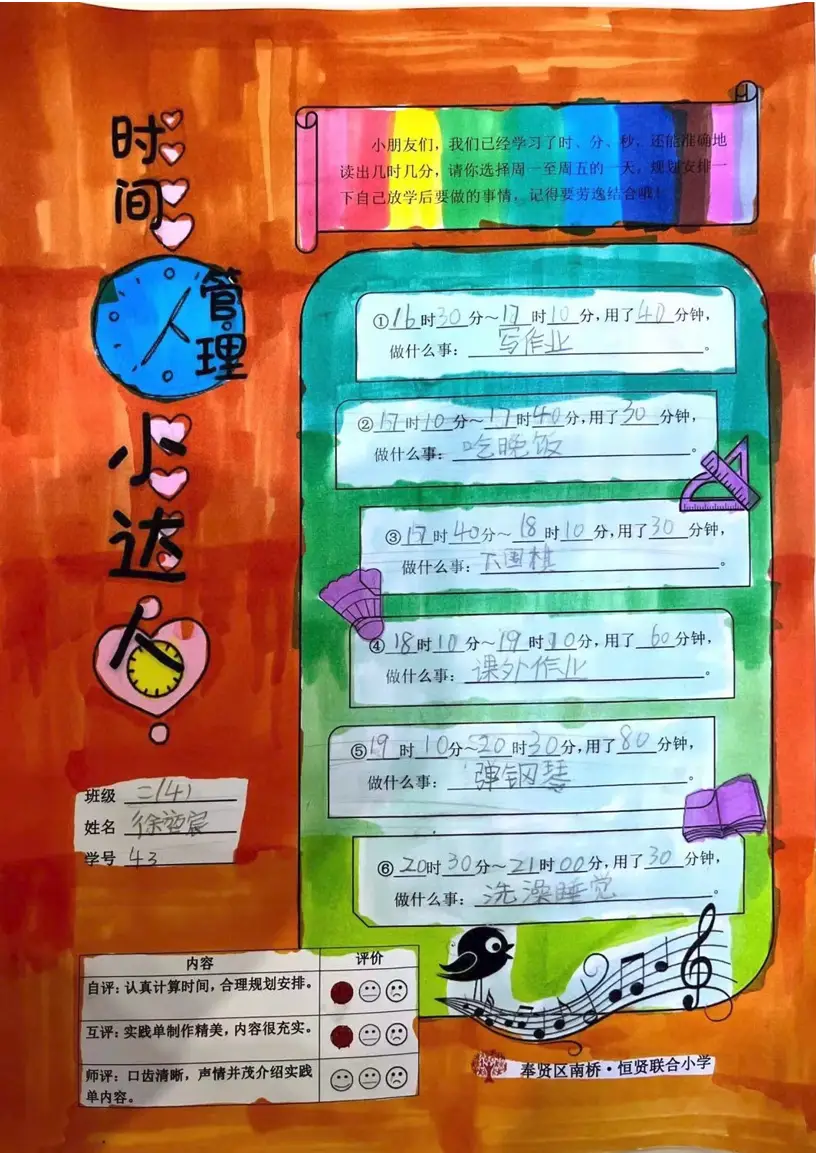 时间管理小达人
小朋友们，我们已经学习了时、分、秒，还能准确地
读出几时几分，请你选择周一至周五的一天，规划安排一
下自己放学后要做的事情，记得要劳逸结合哦！
①16时30分～17时10分，用了40分钟，
做什么事：写作业。
②17时10分～17时40分，用了30分钟，
做什么事：吃晚饭。
③17时40分～18时10分，用了30分钟，
做什么事：下围棋
④18时10分～19时10分，用了60分钟，
做什么事：课外作业。
⑤19时10分～20时30分，用了80分钟，
做什么事：弹钢琴。
⑥20时30分～21时00分，用了30分钟，
做什么事：洗澡睡觉。
班级 二(4)
姓名 徐宸
学号 43
内容 评价
自评：认真计算时间，合理规划安排。
互评：实践单制作精美，内容很充实。
师评：口齿清晰，声情并茂介绍实践
单内容。
奉贤区南桥·恒贤联合小学